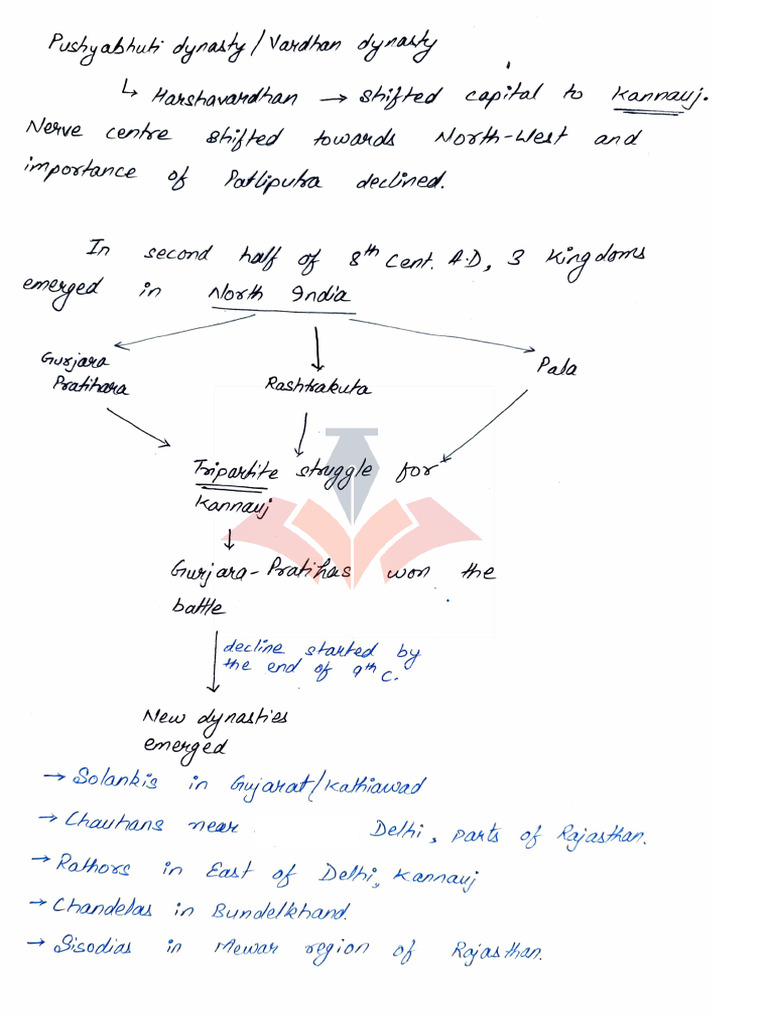 Pushyabhuti dynasty/Vardhan dynasty
↳ Harshavardhan → shifted capital to Kannauj.
Nerve centre shifted towards North-West and
importance of Patliputra declined.
In second half of 8th Cent. A.D, 3 Kingdoms
emerged in North India
Gurjara
Pratihara
Rashtrakuta
Pala
Tripartite struggle for
Kannauj
Gurjara-Pratihas won the
battle
decline started by
the end of 9th C.
New dynasties
emerged
→ Solankis in Gujarat/Kathiawad
→ Chauhans near Delhi, parts of Rajasthan.
→ Rathors in East of Delhi, Kannauj
→ Chandelas in Bundelkhand
→ Sisodias in Mewar region of Rajasthan.